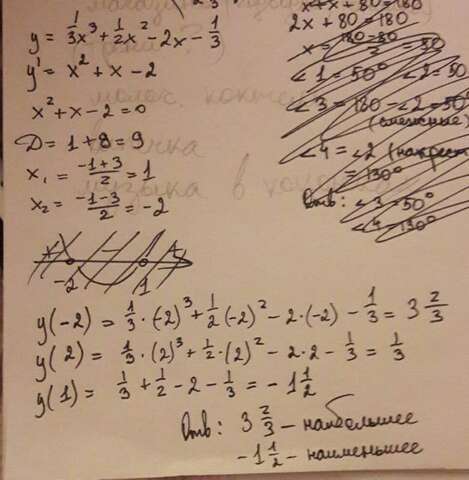 y = 1/3x³ + 1/2x² - 2x - 1/3
y' = x² + x - 2
x² + x - 2 = 0
D = 1 + 8 = 9
x₁ = (-1+3)/2 = 1
x₂ = (-1-3)/2 = -2
-2 1
y(-2) = 1/3 · (-2)³ + 1/2 (-2)² - 2·(-2) - 1/3 = 3 2/3
y(2) = 1/3 · (2)³ + 1/2 · (2)² - 2·2 - 1/3 = 1/3
y(1) = 1/3 + 1/2 - 2 - 1/3 = -1 1/2
Отв: 3 2/3 - наибольшее
-1 1/2 - наименьшее
x + x + 80 = 180
2x + 80 = 180
∠1 = 50° ∠2 = 50
∠3 = 180 - ∠2 = 50°
(смежные)
∠4 = ∠2
= 130°
Отв: ∠3 = 50°
∠4 = 130°
музыка в